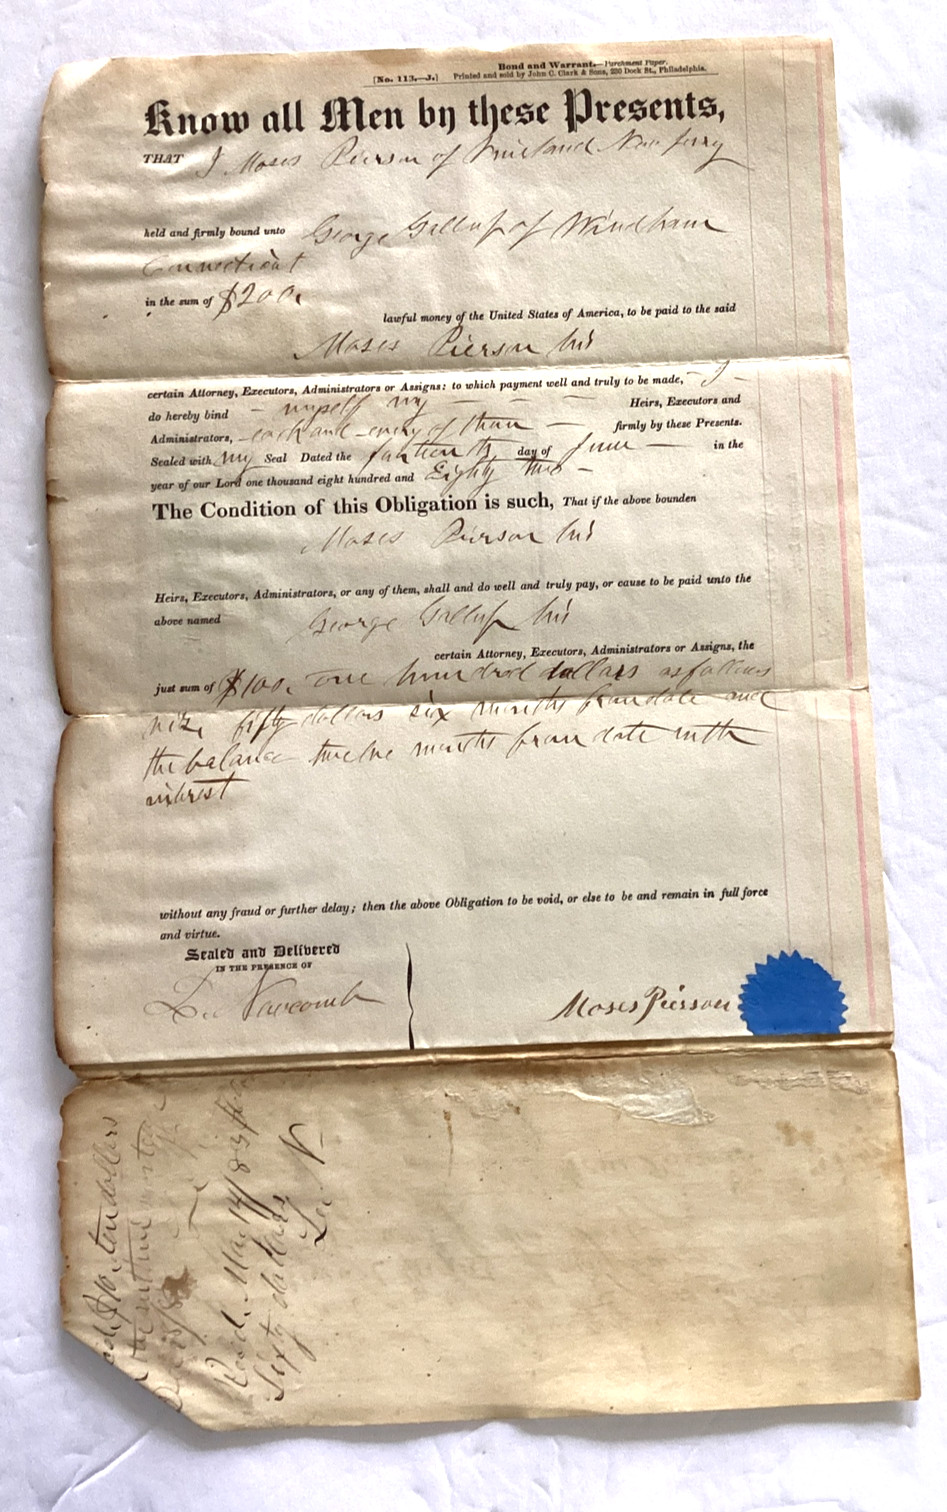 Bond and Warrant.—Parchment Paper.
[No. 113.—J.] Printed and sold by John C. Clark & Sons, 230 Dock St., Philadelphia.
Know all Men by these Presents,
THAT I Moses Pierson of Vineland New Jersey
held and firmly bound unto George Gallup of Windham
Connecticut
in the sum of $200.
lawful money of the United States of America, to be paid to the said
Moses Pierson his
certain Attorney, Executors, Administrators or Assigns: to which payment well and truly to be made, – I –
do hereby bind – myself my – – – – Heirs, Executors and
Administrators, – each and every of them – firmly by these Presents.
Sealed with my Seal Dated the day of June – in the
year of our Lord one thousand eight hundred and Eighty two –
The Condition of this Obligation is such, That if the above bounden
Moses Pierson his
Heirs, Executors, Administrators, or any of them, shall and do well and truly pay, or cause to be paid unto the
above named George Gallup his
certain Attorney, Executors, Administrators or Assigns, the
just sum of $100. One hundred dollars as follows
viz. fifty dollars six months from date and
the balance twelve months from date with
interest
without any fraud or further delay; then the above Obligation to be void, or else to be and remain in full force
and virtue.
Sealed and Delivered
IN THE PRESENCE OF
Moses Pierson
$10 ten dollars
Recd. May 14/83
Sixty dollars